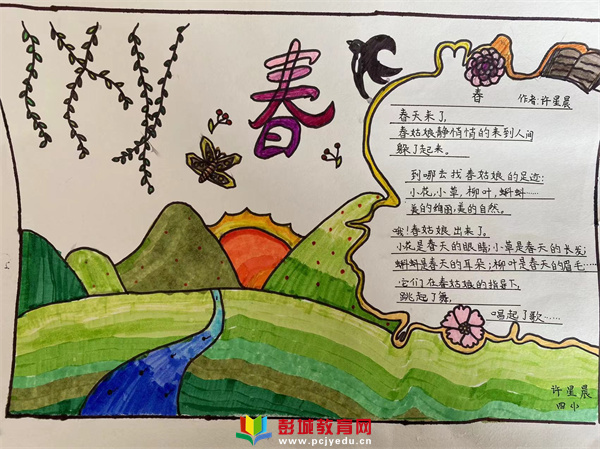 春
春
作者:许星晨
春天来了,
春姑娘静悄悄的来到人间
躲了起来。
到哪去找春姑娘的足迹:
小花,小草,柳叶,蝌蚪……
美的绚丽,美的自然。
哦!春姑娘出来了。
小花是春天的眼睛;小草是春天的长发;
蝌蚪是春天的耳朵;柳叶是春天的眉毛……
它们在春姑娘的指导下,
跳起了舞,
唱起了歌……
许星晨
四小
彭城教育网
www.pcjyedu.cn